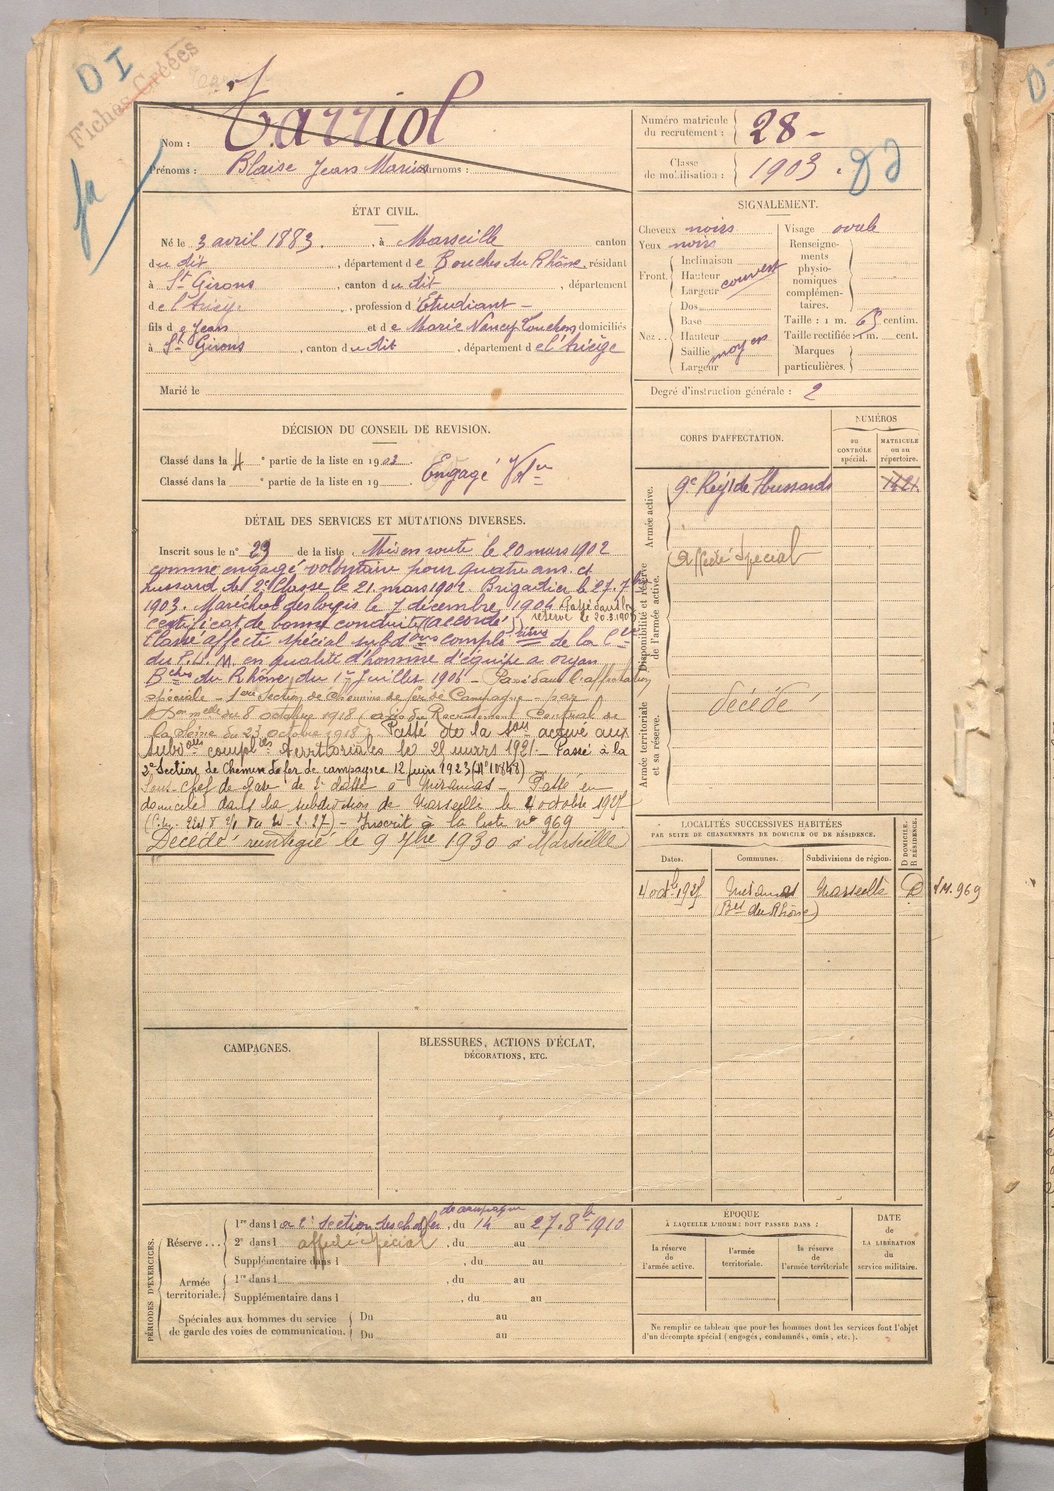 DI
Fiches Créées
fa
Nom : Tarriol
Prénoms : Blaise Jean Marius Surnoms :
Numéro matricule du recrutement : 28 -
Classe de mobilisation : 1903.
ÉTAT CIVIL.
Né le 3 avril 1883, à Marseille canton
du dit, département de Bouches du Rhône, résidant
à St Girons, canton du dit, département
de l'Ariège, profession d'Étudiant -
fils de Jean et de Marie Nancy domiciliés
à St Girons, canton du dit, département de l'Ariège
Marié le
SIGNALEMENT.
Cheveux noirs
Yeux noirs
Front. Inclinaison
Hauteur couvert
Largeur
Nez. Dos
Base
Hauteur
Saillie moyen
Largeur
Visage ovale
Renseignements physionomiques complémentaires.
Taille : 1 m. 63 centim.
Taille rectifiée : 1 m. cent.
Marques particulières.
Degré d'instruction générale : 2
DÉCISION DU CONSEIL DE REVISION.
Classé dans la 4e partie de la liste en 1903.
Classé dans la e partie de la liste en 19
Engagé Vre
CORPS D'AFFECTATION.
NUMÉROS
DU CONTRÔLE spécial.
MATRICULE ou au répertoire.
Armée active.
9e Régt de Hussards
Disponibilité et réserve de l'armée active.
Affecté Spécial
Armée territoriale et sa réserve.
décédé
DÉTAIL DES SERVICES ET MUTATIONS DIVERSES.
Inscrit sous le n° 29 de la liste Mis en route le 20 mars 1902
comme engagé volontaire pour quatre ans et
hussard de 2e Classe le 21 mars 1902. Brigadier le 27. 7bre
1903. Maréchal des logis le 7 décembre 1904 Passé dans la
réserve le 20.3.1906
Certificat de bonne conduite (accordé)
Classé affecté spécial subdons complres de la Cie
du P.L.M. en qualité d'homme d'équipe à
Bches du Rhône, du 1er Juillet 1906 - Passé dans l'affectation
spéciale - 1ère Section de chemins de fer de Campagne - par
du 8 octobre 1918 (avis du Recrutement Central de
la Seine du 23 octobre 1918) Passé de la son active aux
subdons compl res territoriales le 21 mars 1921 - Passé à la
2e Section de Chemin de fer de campagne 12 juin 1923 (N° 10848)
Sous-chef de gare de 2e classe à Miramas - Passé en
domicile dans la subdivision de Marseille le 4 octobre 1925
- Inscrit à la liste n° 969
Décédé réintégré le 9 7bre 1930 à Marseille
LOCALITÉS SUCCESSIVES HABITÉES
PAR SUITE DE CHANGEMENTS DE DOMICILE OU DE RÉSIDENCE.
Dates. Communes. Subdivisions de région. D DOMICILE. R RÉSIDENCE.
4 octb 1925 Miramas Marseille D 969
(Bes du Rhône)
CAMPAGNES.
BLESSURES, ACTIONS D'ÉCLAT,
DÉCORATIONS, ETC.
PÉRIODES D'EXERCICES.
Réserve...
1re dans la 2e section des ch de fer de campagne, du 14 au 27.8b 1910
2e dans l affecté spécial, du au
Supplémentaire dans l, du au
Armée territoriale.
1re dans l, du au
Supplémentaire dans l, du au
Spéciales aux hommes du service
de garde des voies de communication.
Du au
Du au
ÉPOQUE
À LAQUELLE L'HOMME DOIT PASSER DANS :
la réserve de l'armée active.
l'armée territoriale.
la réserve de l'armée territoriale
DATE de LA LIBÉRATION du service militaire.
Ne remplir ce tableau que pour les hommes dont les services font l'objet
d'un décompte spécial (engagés, condamnés, omis, etc.).